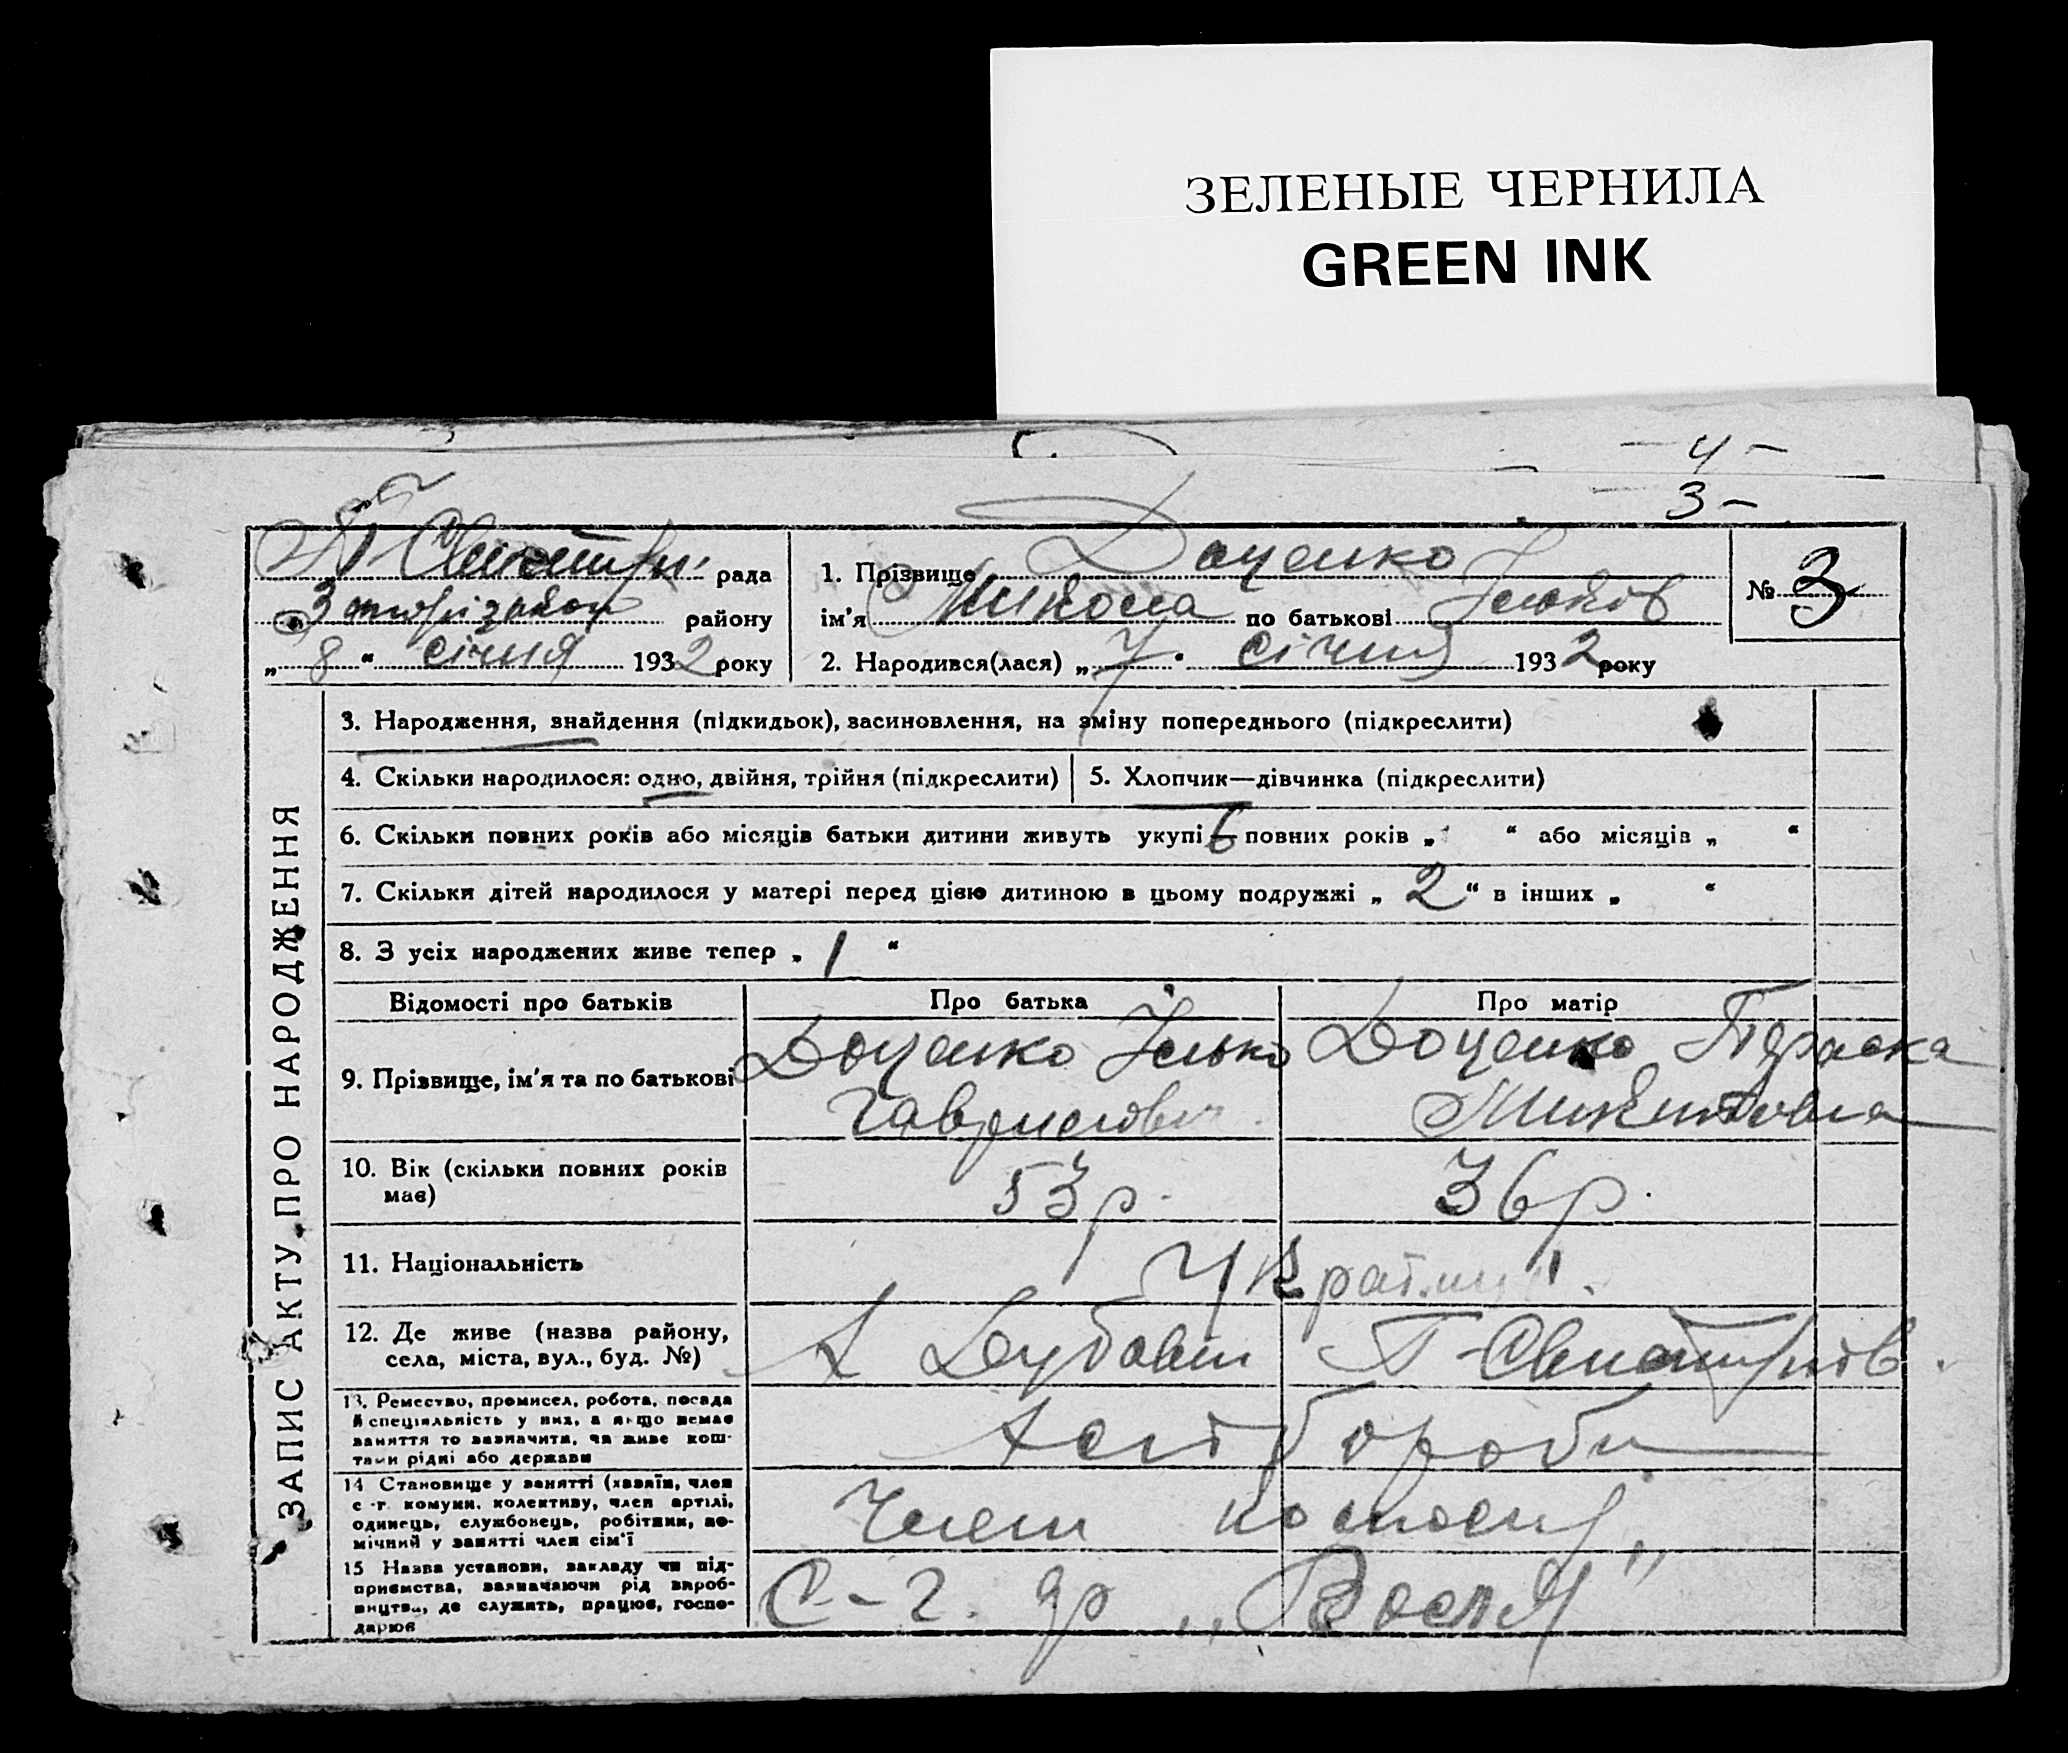 ЗЕЛЕНЫЕ ЧЕРНИЛА
GREEN INK
— 4 —
3 —
рада
району
„ 8 “ січня 1932 року
1. Прізвище Доценко
ім'я Микола по батькові Ільків
2. Народився(лася) „ 7 “ січня 1932 року
№ 3
ЗАПИС АКТУ ПРО НАРОДЖЕННЯ
3. Народження, знайдення (підкидьок), засиновлення, на зміну попереднього (підкреслити)
4. Скільки народилося: одно, двійня, трійня (підкреслити)
5. Хлопчик—дівчинка (підкреслити)
6. Скільки повних років або місяців батьки дитини живуть укупі 6 повних років „ “ або місяців „ “
7. Скільки дітей народилося у матері перед цією дитиною в цьому подружжі „ 2 “ в інших „ “
8. З усіх народжених живе тепер „ 1 “
Відомості про батьків Про батька Про матір
9. Прізвище, ім'я та по батькові
Доценко Ілько
Гаврилович
Доценко Параска
Микитовна
10. Вік (скільки повних років
має)
53 р. 36 р.
11. Національність
Україн.
12. Де живе (назва району,
села, міста, вул., буд. №)
13. Ремество, промисел, робота, посада
й спеціяльність у них, а якщо немає
заняття то зазначити, чи живе кош-
тами рідні або держави
Хлібороби
14 Становище у занятті (хазяїн, член
с.-г. комуни, колективу, член артілі,
одинець, службовець, робітник, по-
мічний у занятті член сім'ї
Член
15 Назва установи, закладу чи під-
приємства, зазначаючи рід вироб-
ництва, де служить, працює, госпо-
дарює
С-г. ар